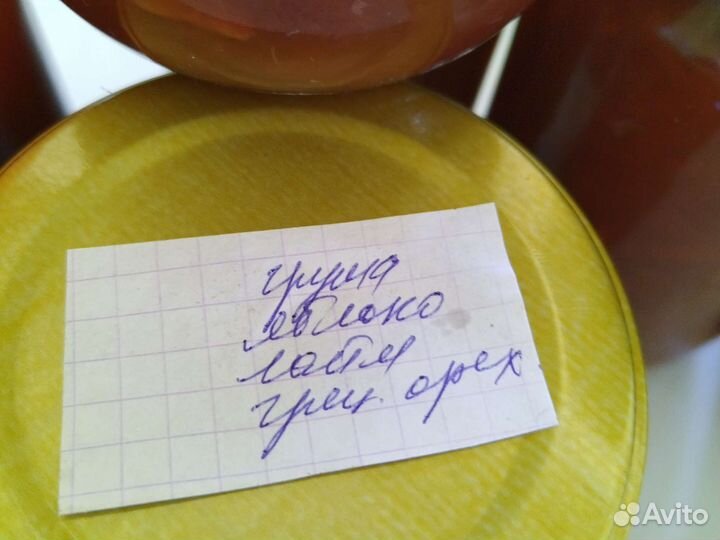 груша
яблоко
лайм
грец. орех
Avito